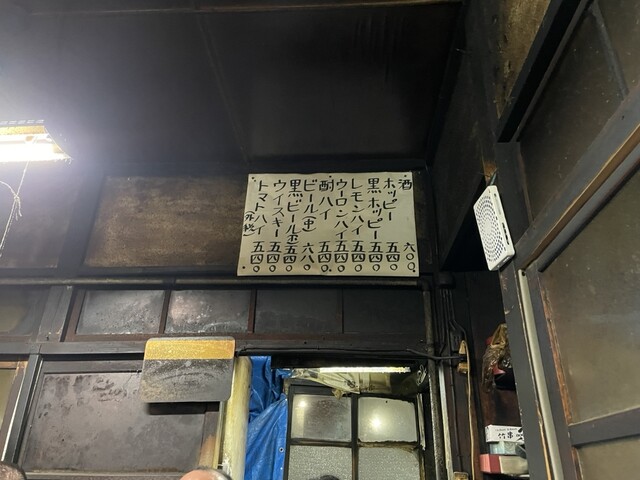 酒 六〇〇
ホッピー 五四〇
黒ホッピー 五四〇
レモンハイ 五四〇
ウーロンハイ 五四〇
酎ハイ 五四〇
ビール(中) 六八〇
黒ビール 五四〇
ウイスキー 五四〇
トマトハイ 五四〇
竹串